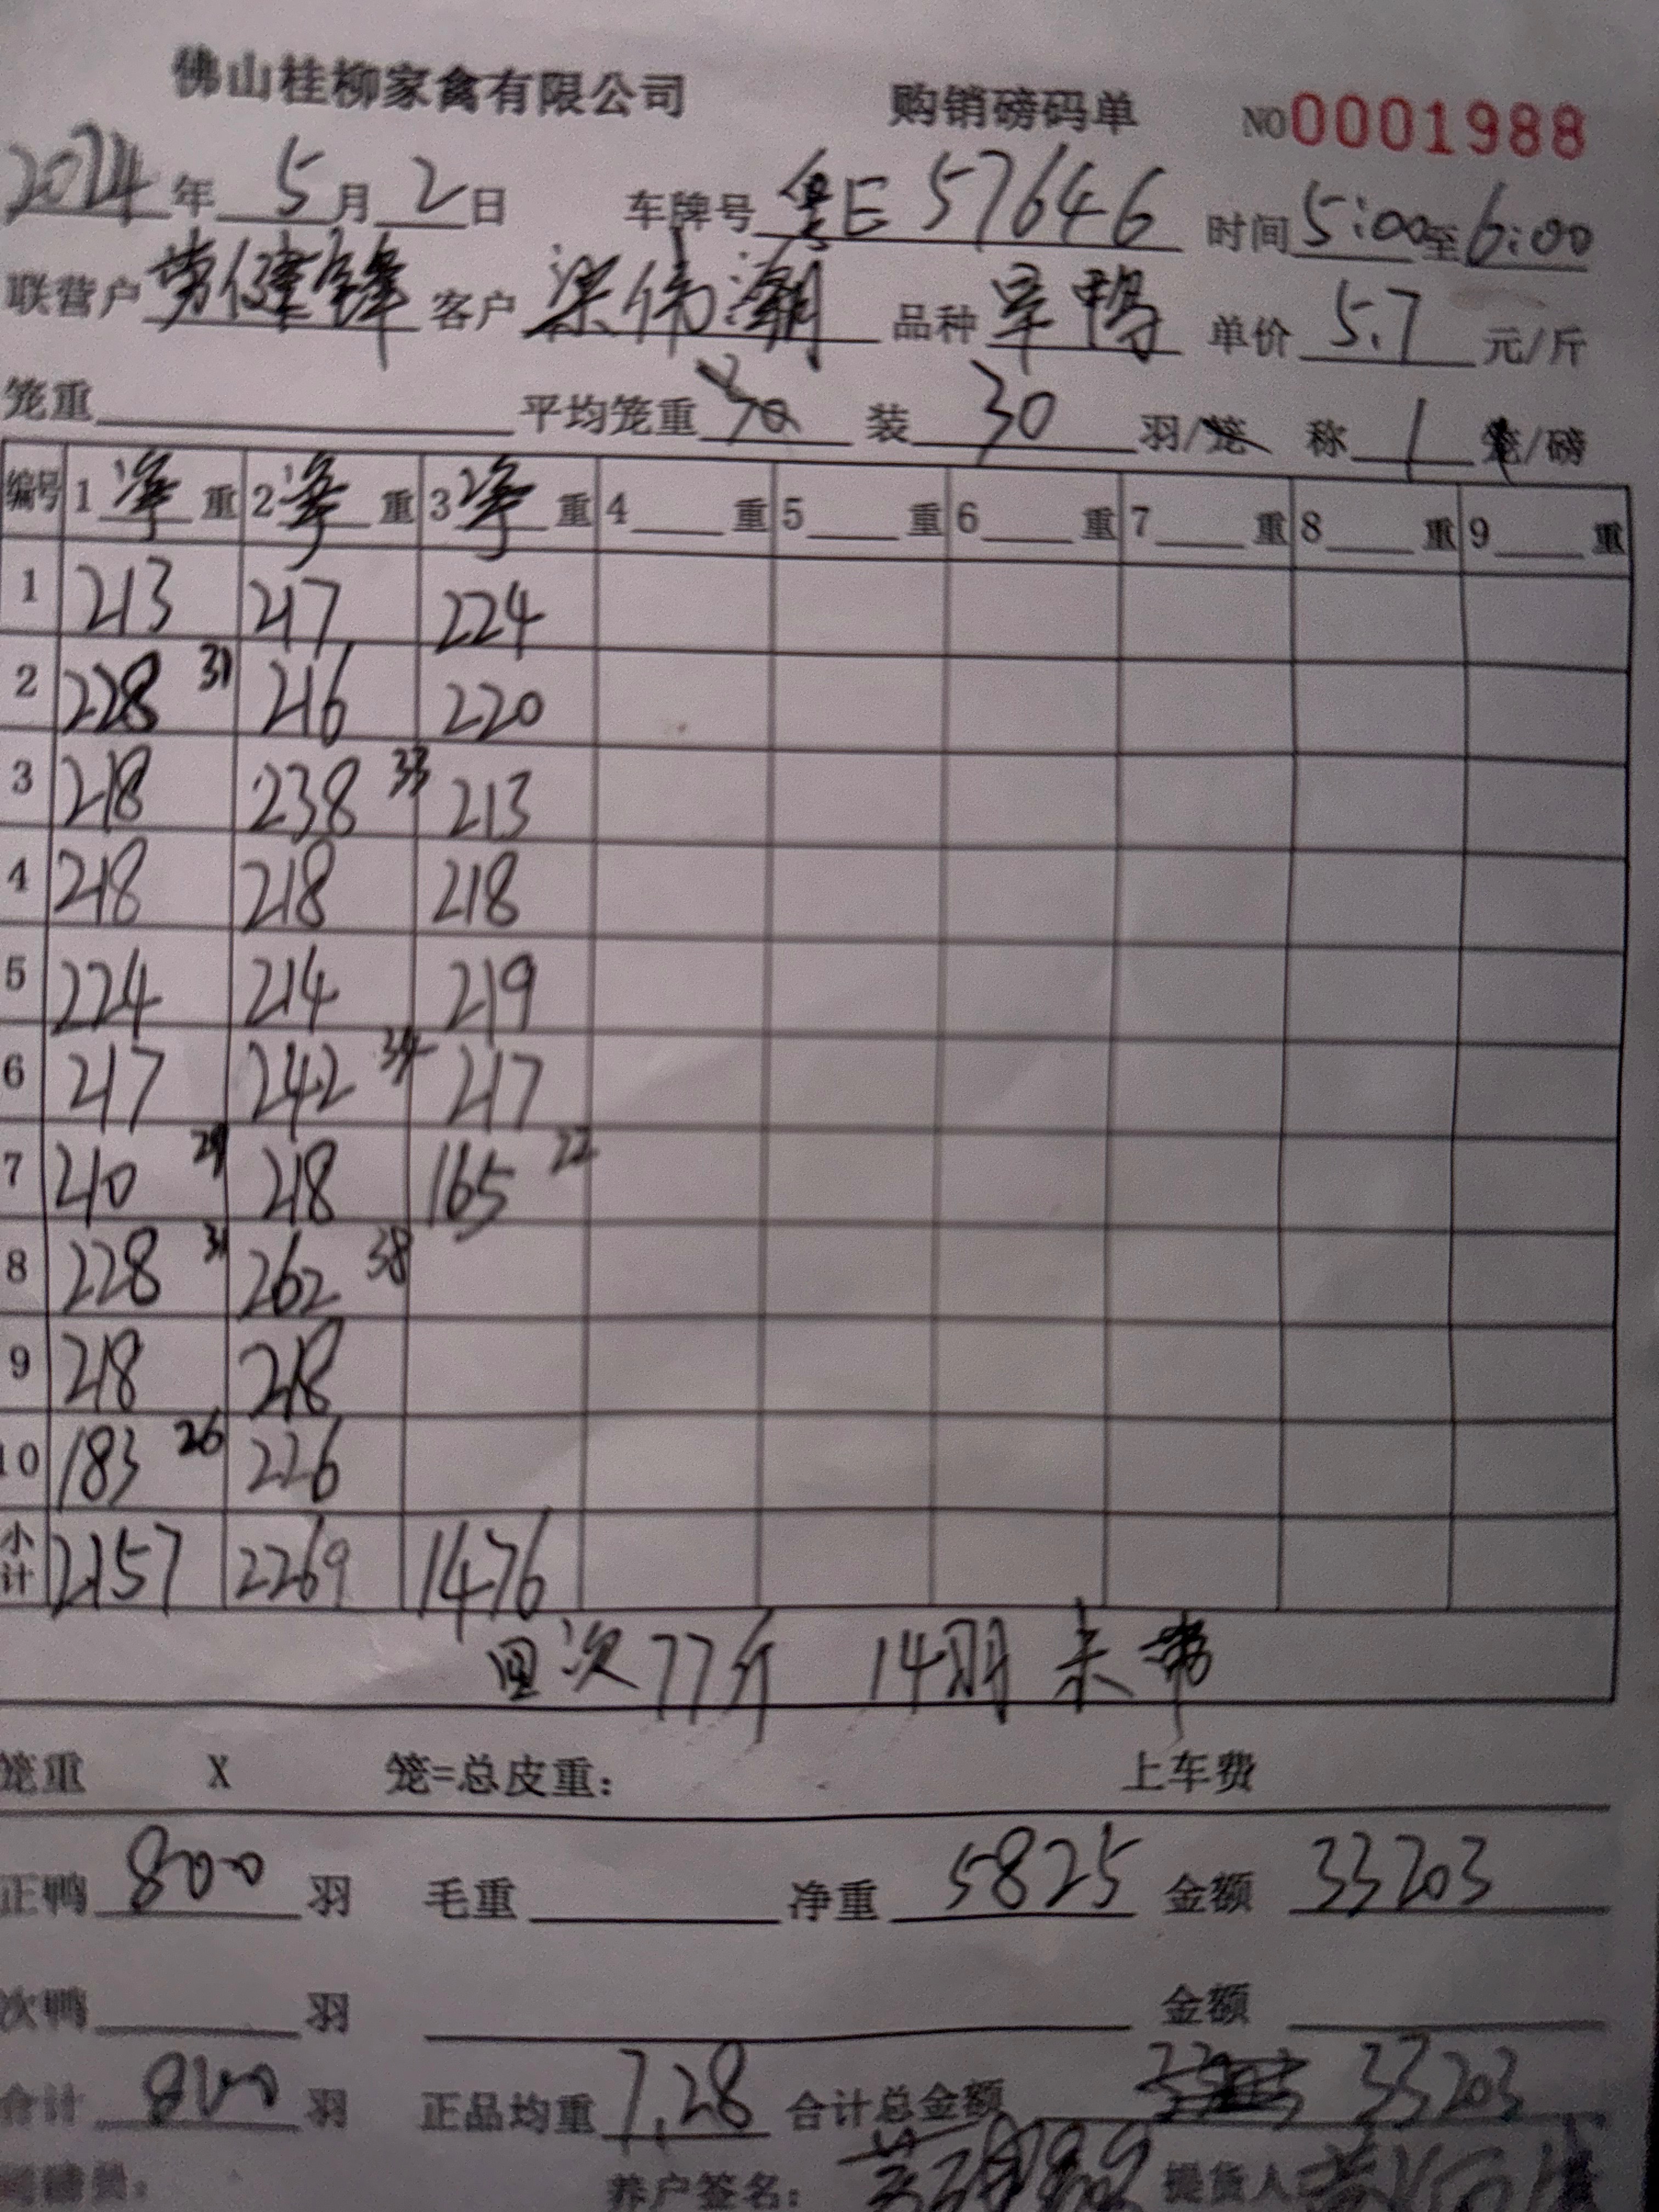 佛山桂柳家禽有限公司 购销磅码单 NO0001988
2024年5月2日 车牌号粤E57646 时间5:00至6:00
联营户劳健锋 客户梁伟潮 品种旱鸭 单价5.7元/斤
笼重 平均笼重 装30羽/笼 称1笼/磅
编号 1净重 2净重 3净重 4重 5重 6重 7重 8重 9重
1 213 217 224
2 228 31 216 220
3 218 238 33 213
4 218 218 218
5 224 214 219
6 217 242 34 217
7 210 29 218 165 22
8 228 31 262 38
9 218 218
10 183 26 226
小计 2157 2269 1476
回次77斤 14羽未带
笼重 X 笼=总皮重: 上车费
正鸭800羽 毛重 净重5825 金额33203
次鸭 羽 金额
合计800羽 正品均重7.28 合计总金额 33203
养户签名: 提货人: